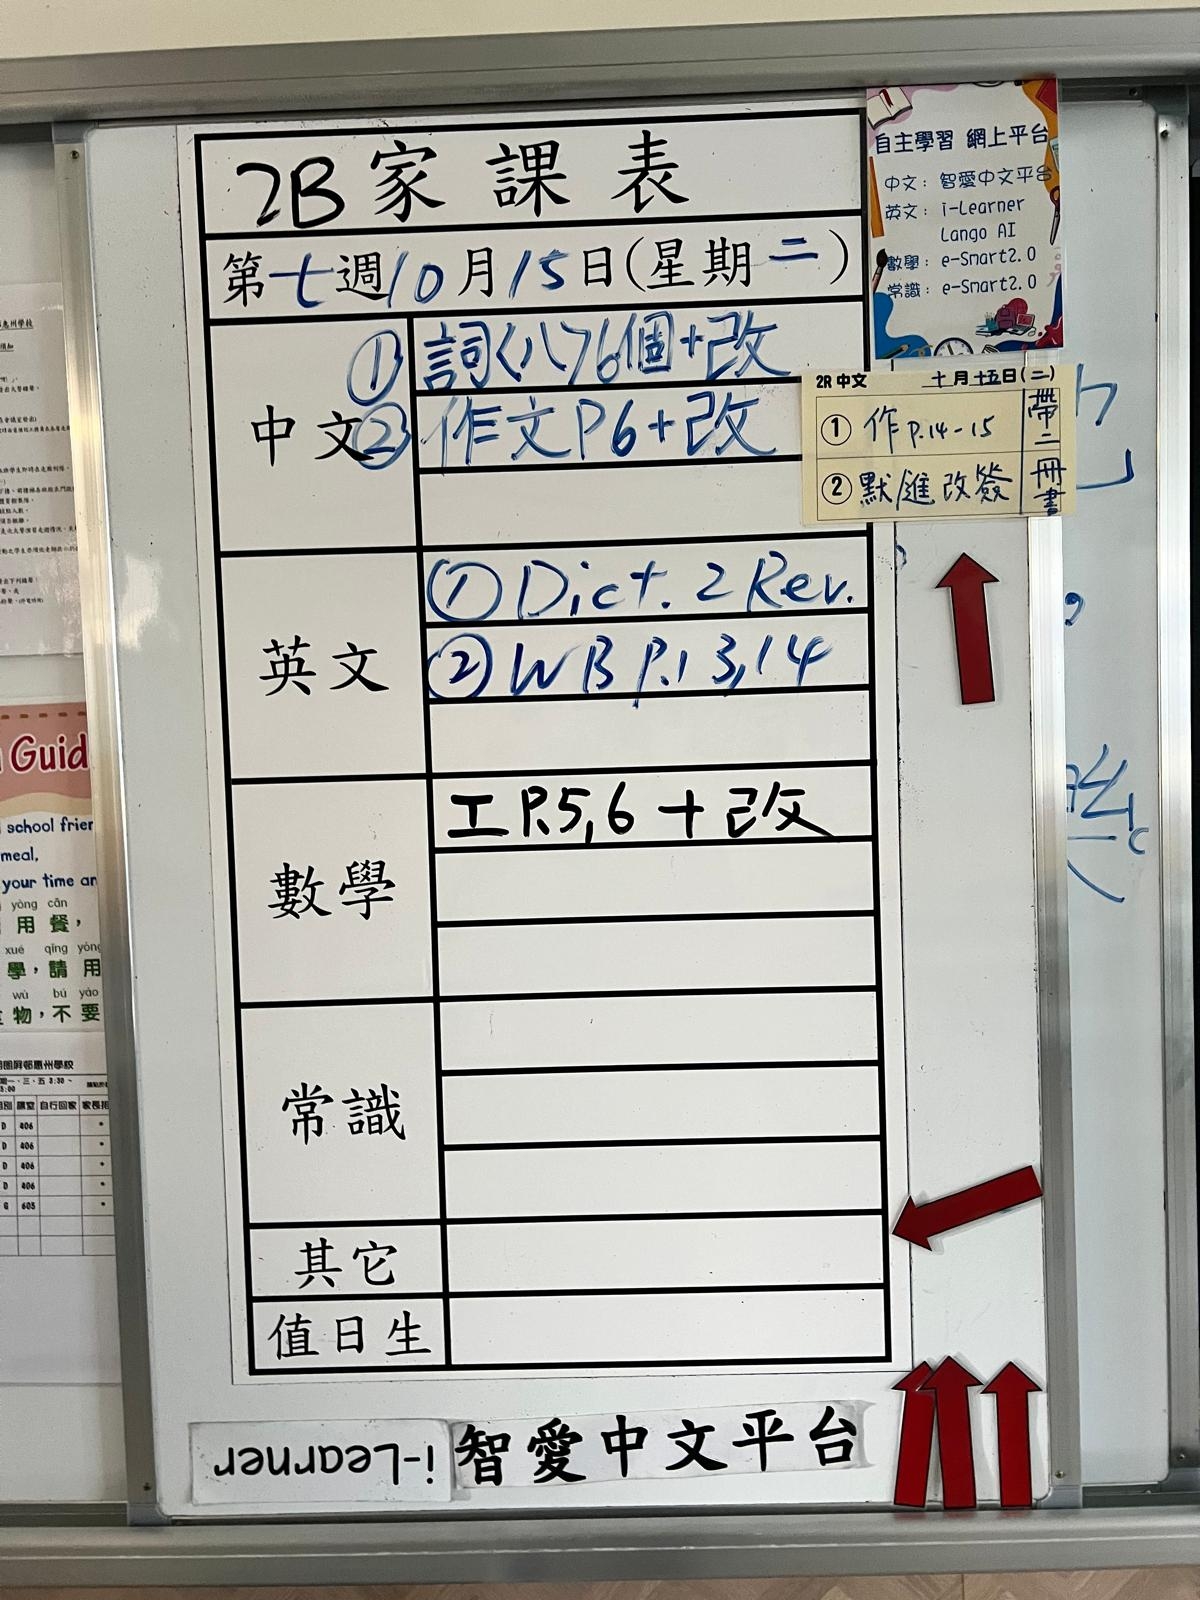 2B家課表
第七週10月15日(星期二)
中文
① 詞〈八〉6個+改
② 作文P6+改
英文
① Dict. 2 Rev.
② WB P.13,14
數學
工P.5,6 + 改
常識
其它
值日生
i-Learner
智愛中文平台
自主學習 網上平台
中文: 智愛中文平台
英文: i-Learner
Lango AI
數學: e-Smart2.0
常識: e-Smart2.0
2R 中文 十月十五日(二)
① 作 P.14-15
② 默進改簽
帶二冊書
Guid
school frien
meal,
your time an
yòng cān
用餐,
xué qǐng yòng
學,請用
wù bú yào
物,不要
自行回家
D 406
D 406
D 406
D 406
G 603